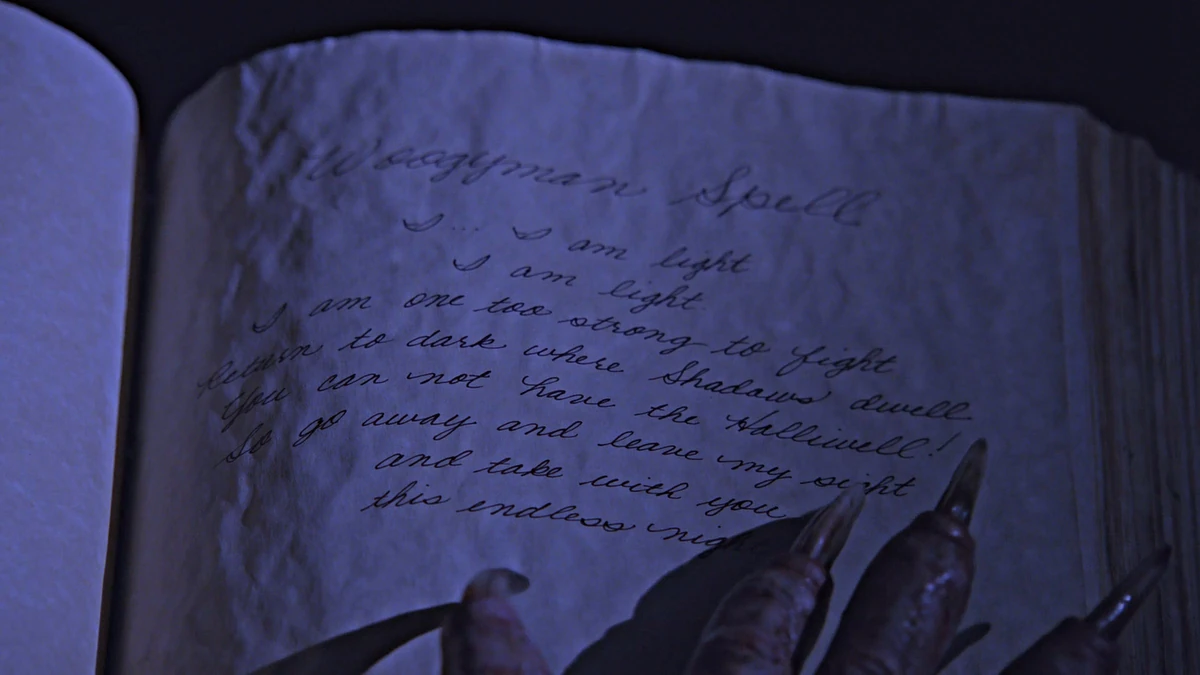 Woogyman Spell
I... I am light
I am light
I am one too strong to fight
Return to dark where Shadows dwell
You can not have the Halliwell!
So go away and leave my sight
and take with you
this endless